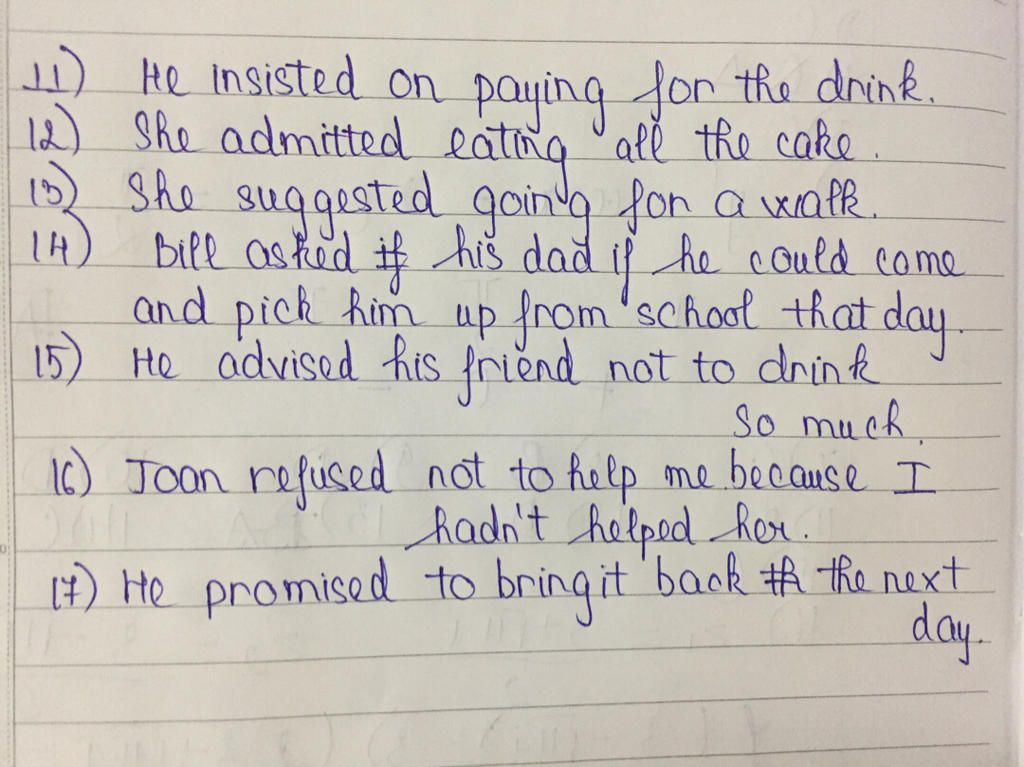 11) He insisted on paying for the drink.
12) She admitted eating all the cake.
13) She suggested going for a walk.
14) Bill asked if his dad if he could come
and pick him up from school that day.
15) He advised his friend not to drink
so much.
16) Joan refused not to help me because I
hadn't helped her.
17) He promised to bring it back th the next
day.